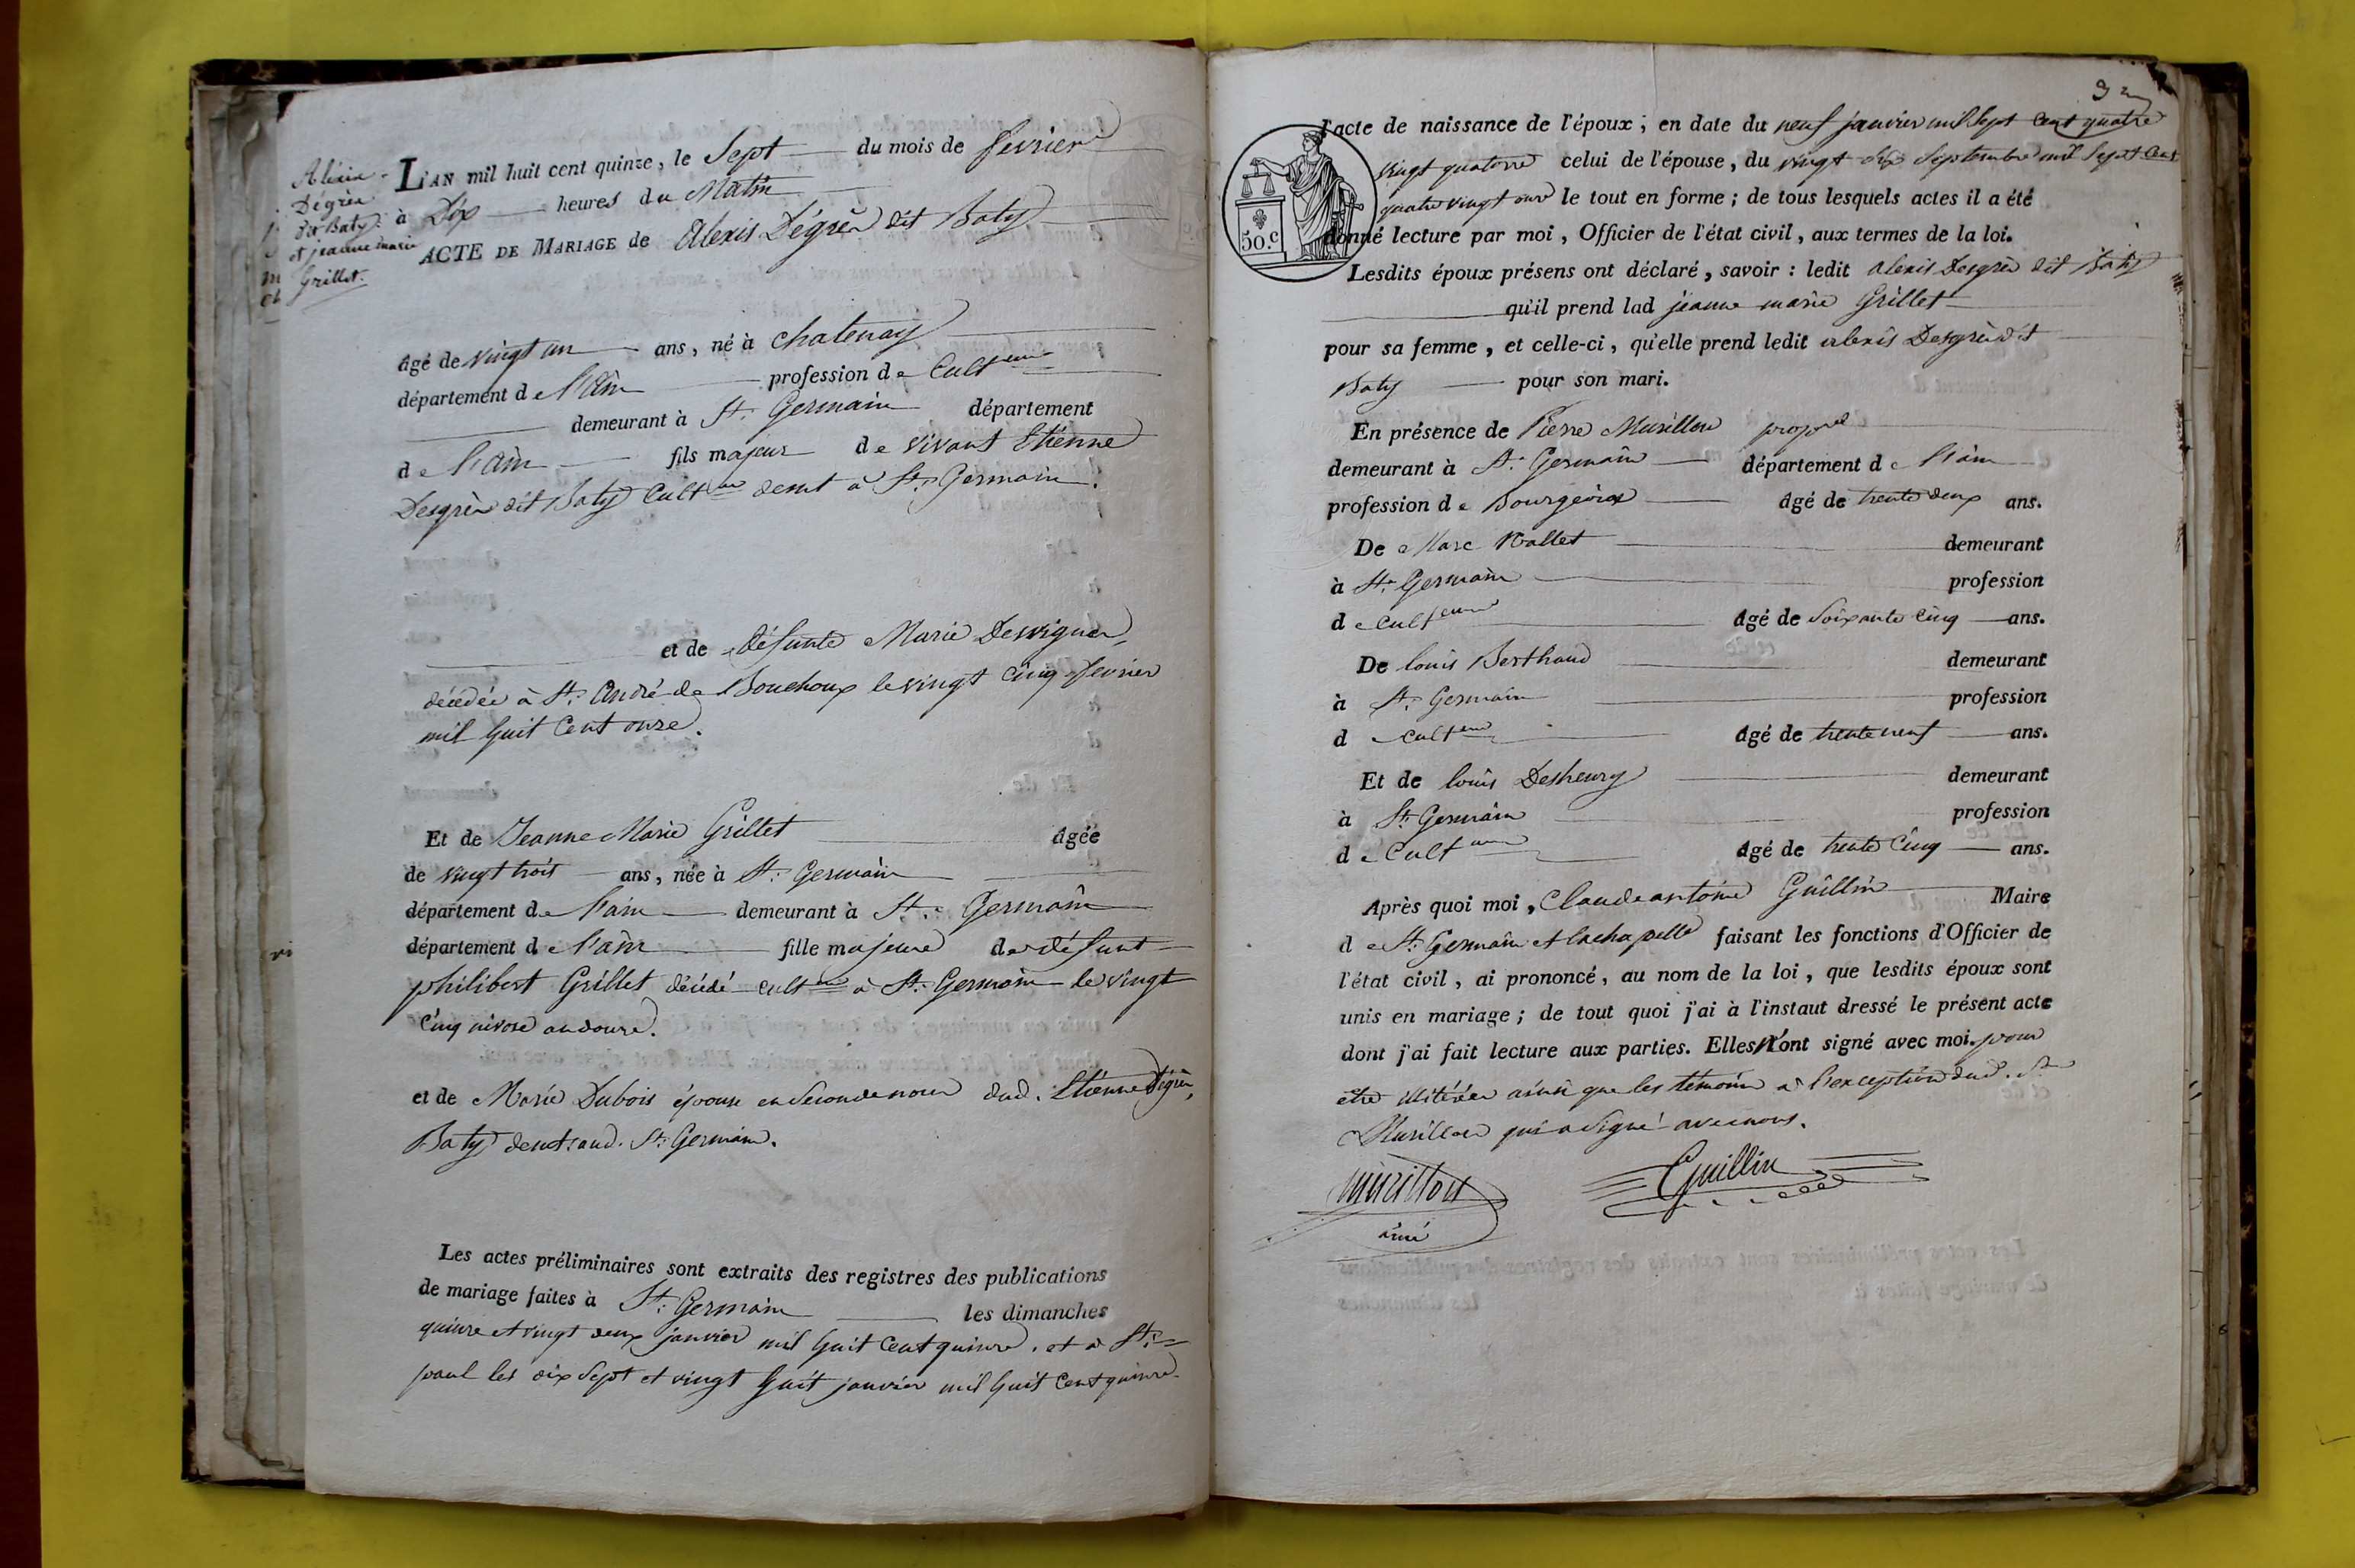 Alexis
Dégrès
dit Baty
et jeanne marie
Grillet.
L'AN mil huit cent quinze, le Sept du mois de fevrier
à Dix heures du Matin
ACTE DE MARIAGE de Alexis Dégrès dit Baty
âgé de vingt un ans, né à chatenay
département de l'ain profession de Cult eur
demeurant à St. Germain département
de l'ain fils majeur de vivant Etienne
Desgrès dit Baty Cult eur demt à St. Germain.
et de défunte Marie Desvignes
décédée à St. André de Bouchoux le vingt cinq fevrier
mil huit Cent onze.
Et de Jeanne Marie Grillet âgée
de vingt trois ans, née à St. Germain
département de l'ain demeurant à St. Germain
département de l'ain fille majeure de défunt
philibert Grillet décédé cult eur à St. Germain le vingt
Cinq nivose an douze.
et de Marie Dubois épouse en Seconde noces dud. Etienne Dégrès,
Baty demt. aud. St. Germain.
Les actes préliminaires sont extraits des registres des publications
de mariage faites à St. Germain les dimanches
quinze et vingt deux janvier mil huit Cent quinze, et à St.
paul les dix Sept et vingt huit janvier mil huit Cent quinze.
l'acte de naissance de l'époux; en date du neuf janvier mil Sept Cent quatre
vingt quatorze celui de l'épouse, du vingt Septembre mil Sept Cent
quatre vingt onze le tout en forme; de tous lesquels actes il a été
50.c donné lecture par moi, Officier de l'état civil, aux termes de la loi.
Lesdits époux présens ont déclaré, savoir: ledit alexis Desgrès dit Baty
qu'il prend lad jeanne marie Grillet
pour sa femme, et celle-ci, qu'elle prend ledit alexis Desgrès dit
Baty pour son mari.
En présence de Pierre Murillon
demeurant à St. Germain département de l'ain
profession de Bourgeois âgé de trente deux ans.
De Marc Vallet demeurant
à St. Germain profession
de cult eur âgé de Soixante Cinq ans.
De louis Berthaud demeurant
à St. Germain profession
de cult eur âgé de trente neuf ans.
Et de louis Desheury demeurant
à St. Germain profession
de Cult eur âgé de trente Cinq ans.
Après quoi moi, Claude antoine Guillin Maire
de St. Germain et lachapelle faisant les fonctions d'Officier de
l'état civil, ai prononcé, au nom de la loi, que lesdits époux sont
unis en mariage; de tout quoi j'ai à l'instant dressé le présent acte
dont j'ai fait lecture aux parties. Elles n'ont signé avec moi. pour
etre illitérées ainsi que les témoins à l'exception dud. Sr
Murillon qui a Signé avec nous.
Murillon
ainé
Guillin